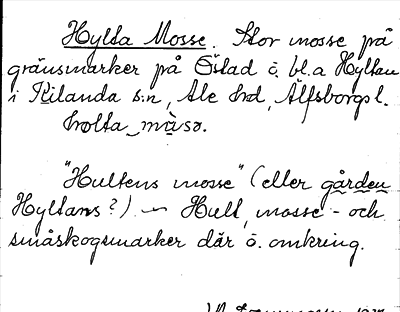 Hylta Mosse. Stor mosse på
gränsmarker på Östad ö. bl.a Hyltan
i Kilanda s:n, Ale hd, Älfsborgs l.
ho̬lta_mås̬ɷ.
"Hultens mosse" (eller gården
Hyltans?) ~ Hult, mosse- och
småskogsmarker där ö. omkring.